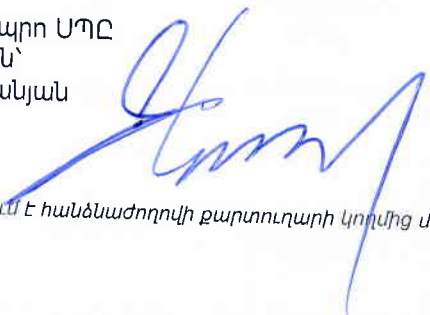 պրո ՍՊԸ
ն՝
անյան
է հանձնաժողովի քարտուղարի կողմից